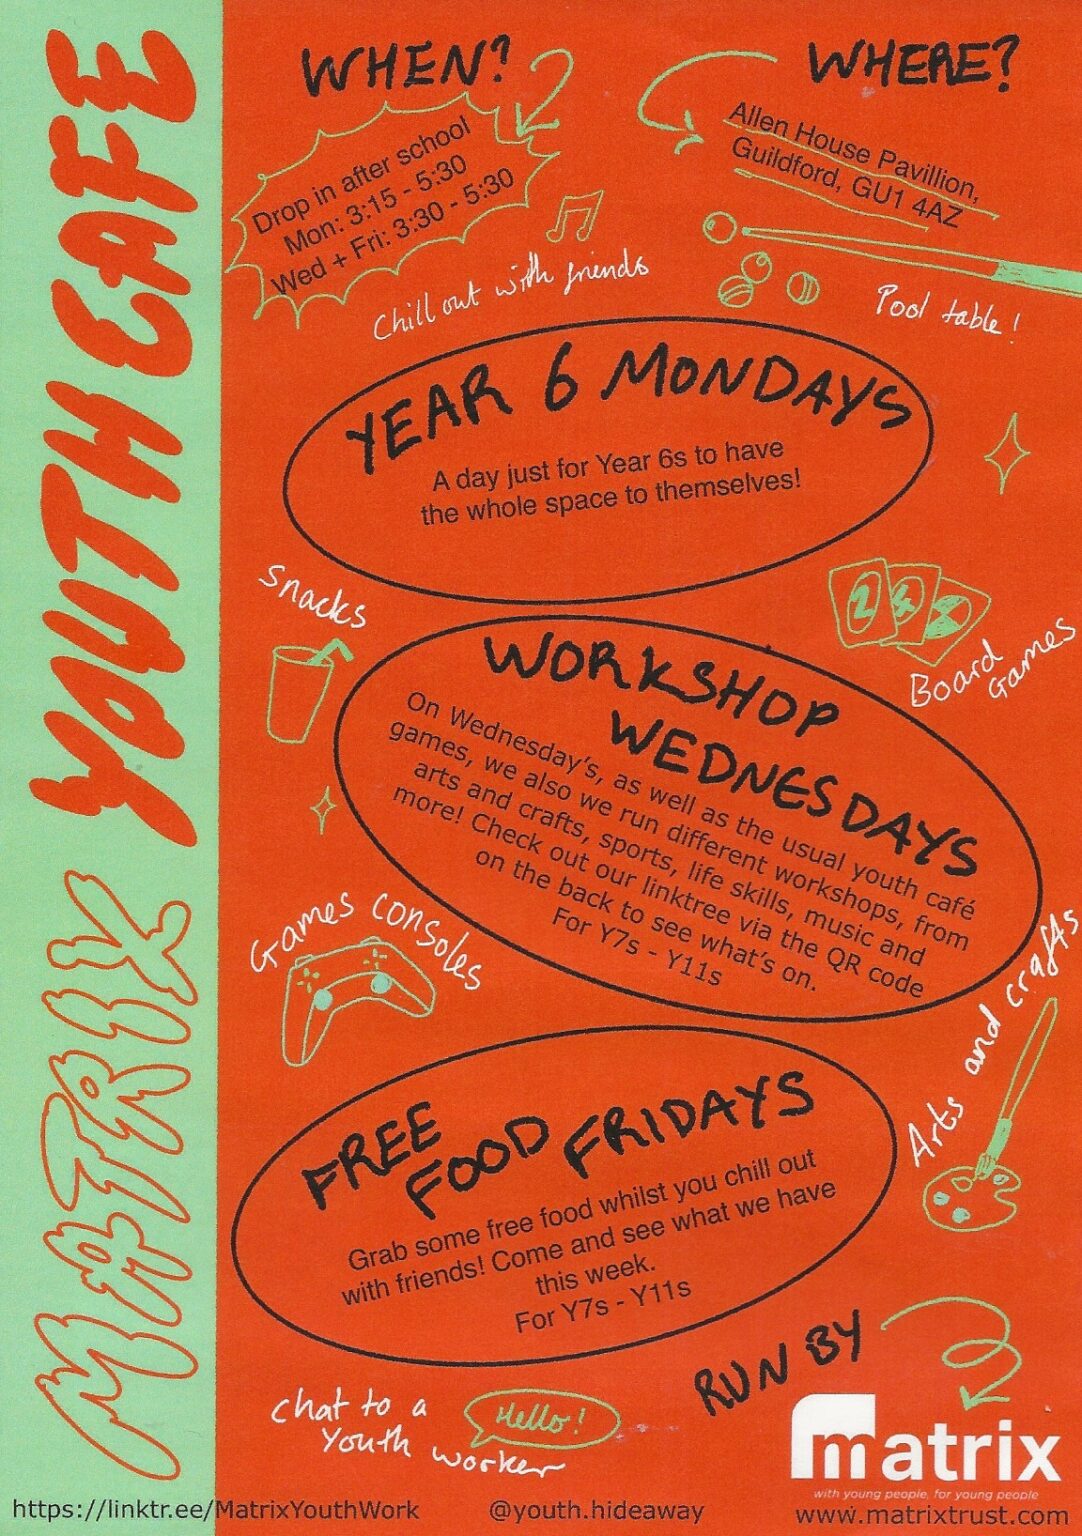 MATRIX YOUTH CAFE
WHEN?
Drop in after school
Mon: 3:15 - 5:30
Wed + Fri: 3:30 - 5:30
WHERE?
Allen House Pavillion,
Guildford, GU1 4AZ
Chill out with friends
Pool table!
YEAR 6 MONDAYS
A day just for Year 6s to have
the whole space to themselves!
snacks
2 4
Board
Games
WORKSHOP
WEDNESDAYS
On Wednesday's, as well as the usual youth café
games, we also we run different workshops, from
arts and crafts, sports, life skills, music and
more! Check out our linktree via the QR code
on the back to see what's on.
For Y7s - Y11s
Games consoles
Arts and crafts
FREE
FOOD FRIDAYS
Grab some free food whilst you chill out
with friends! Come and see what we have
this week.
For Y7s - Y11s
RUN BY
Chat to a
Youth worker
Hello!
matrix
with young people, for young people
https://linktr.ee/MatrixYouthWork
@youth.hideaway
www.matrixtrust.com